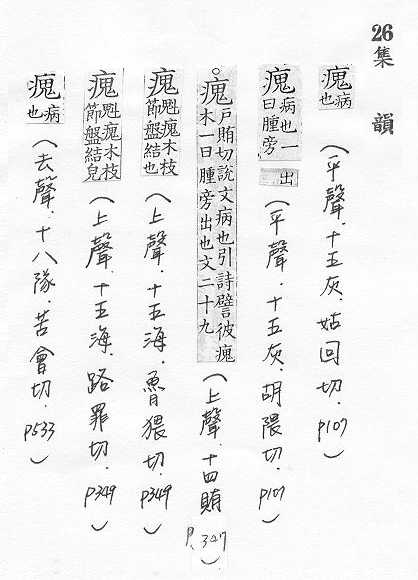 26
集韻
瘣 病也 (平聲.十五灰.姑回切.P107)
瘣 病也一曰腫旁出 (平聲.十五灰.胡隈切.P107)
○瘣 戶賄切說文病也引詩譬彼瘣木一曰腫旁出也文二十九 (上聲.十四賄 P.347)
瘣 魁瘣木枝節盤結也 (上聲.十五海.魯猥切.P349)
瘣 魁瘣木枝節盤結皃 (上聲.十五海.路罪切.P349)
瘣 病也 (去聲.十八隊.苦會切.P533)